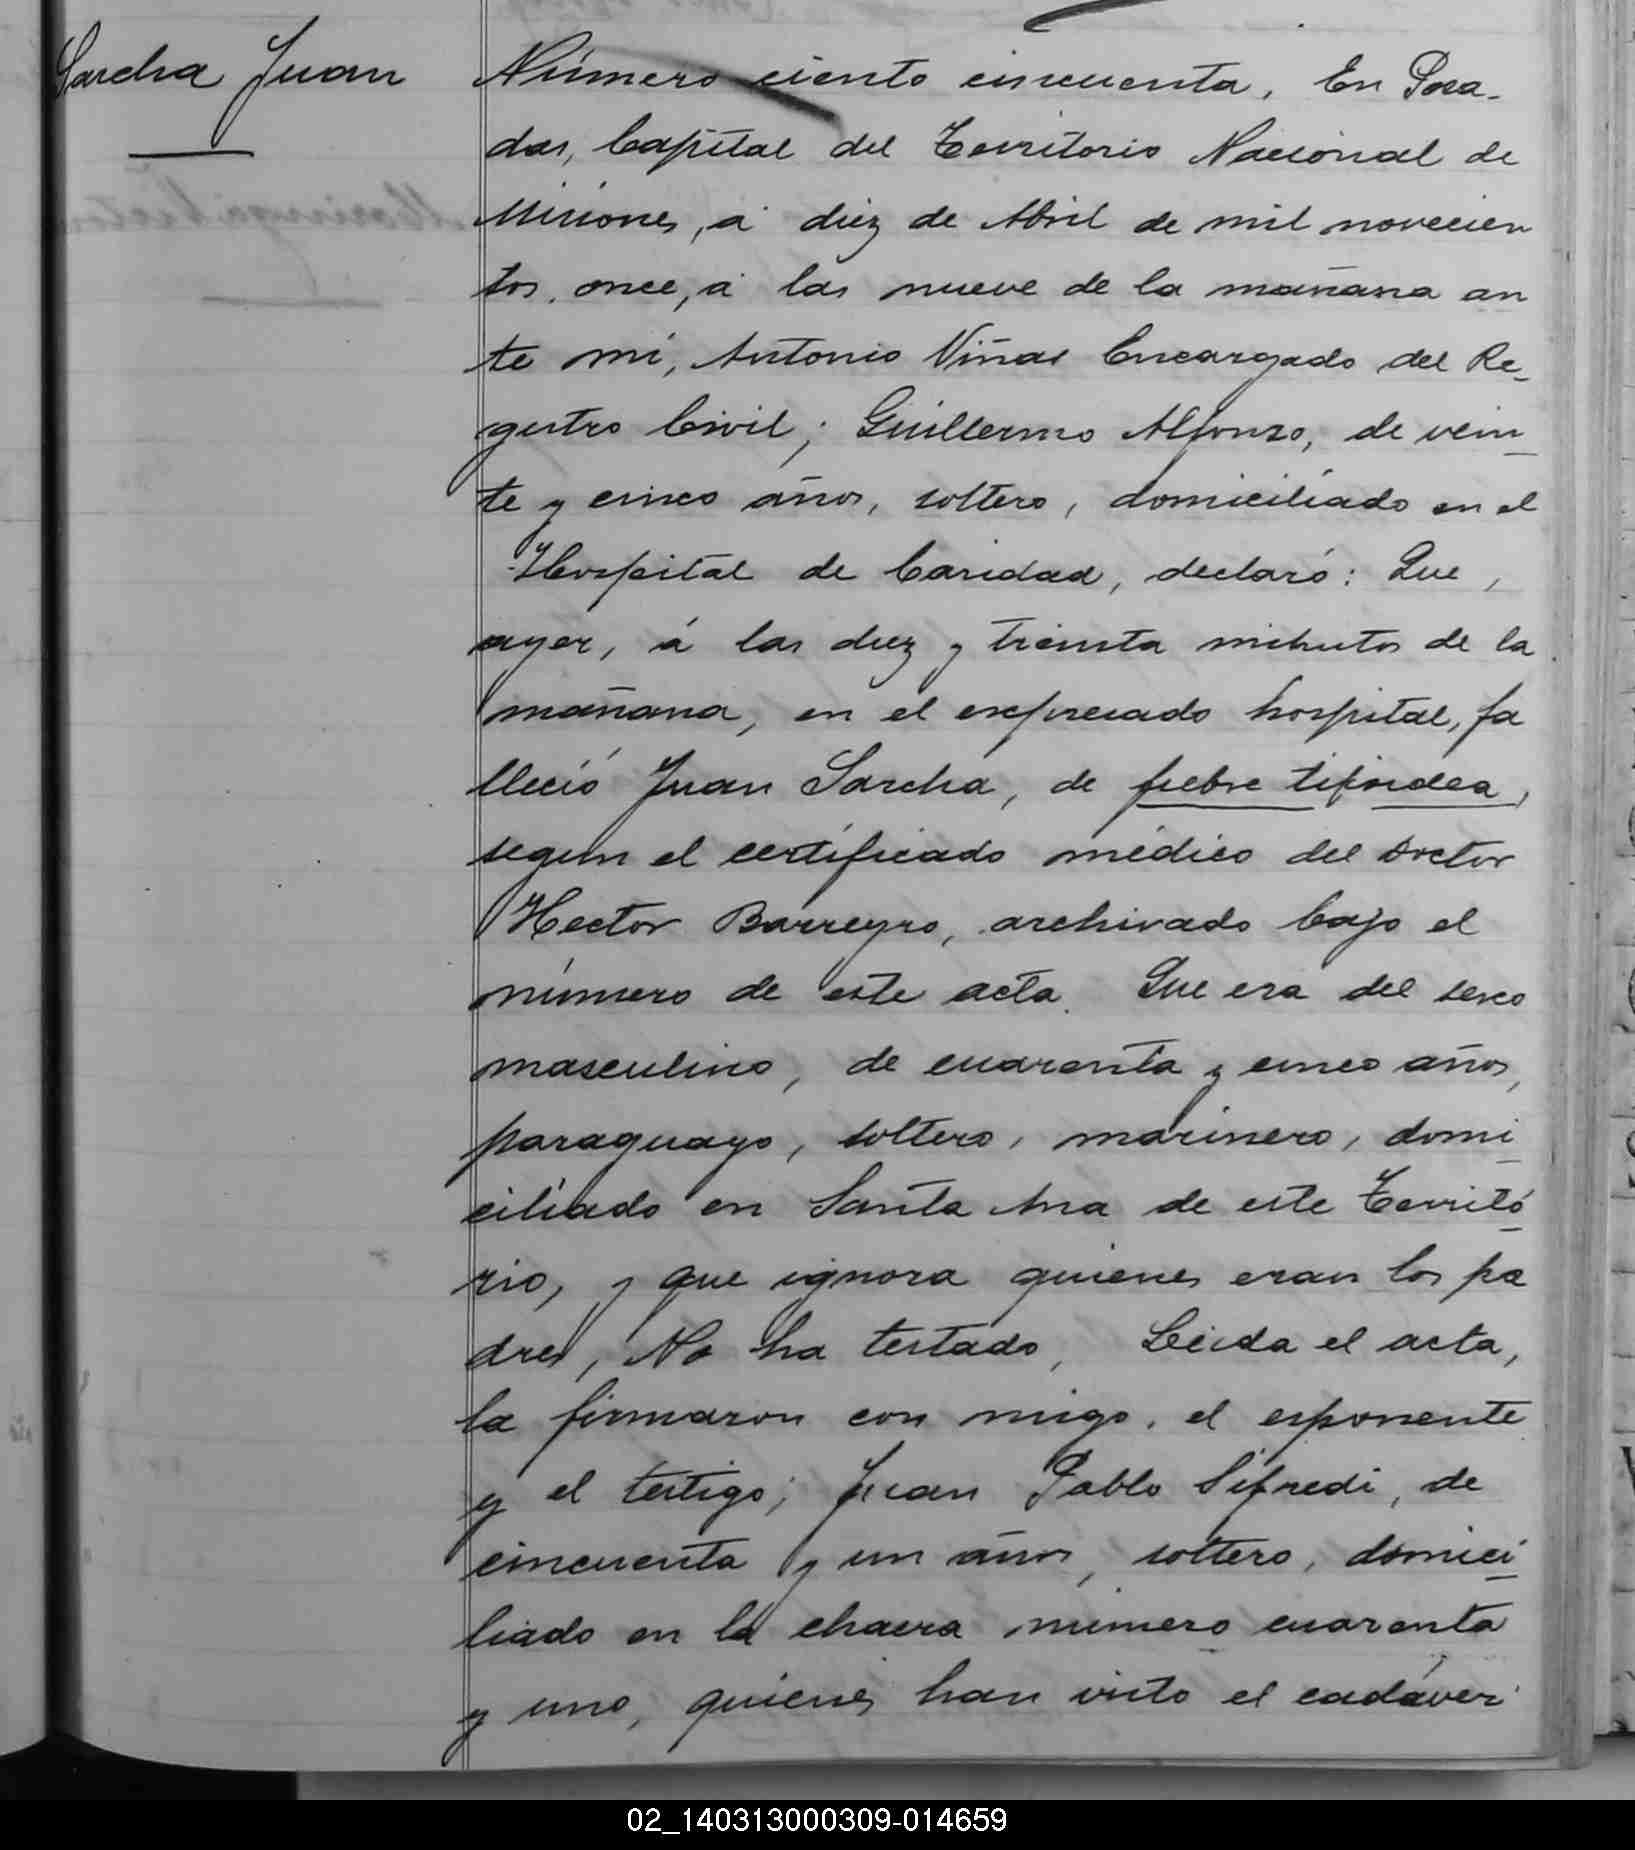 Sarcha Juan
Número ciento cincuenta. En Posa-
das, Capital del Territorio Nacional de
Misiones, á diez de Abril de mil novecien
tos once, á las nueve de la mañana an
te mí, Antonio Viñas Encargado del Re-
gistro Civil; Guillermo Alfonso, de vein
te y cinco años, soltero, domiciliado en el
Hospital de Caridad, declaró: Que,
ayer, á las diez y treinta minutos de la
mañana, en el expresado hospital, fa
lleció Juan Sarcha, de fiebre tifoidea,
segun el certificado médico del doctor
Hector Barreyro, archivado bajo el
número de este acta. Que era del sexo
masculino, de cuarenta y cinco años,
paraguayo, soltero, marinero, domi
ciliado en Santa Ana de este Territo
rio, y que ignora quienes eran los pa
dres, No ha testado, Leida el acta,
la firmaron con migo, el esponente
y el testigo; Juan Pablo Sifredi, de
cincuenta y un años, soltero, domici
liado en la chacra número cuarenta
y uno, quienes han visto el cadáver
02_140313000309-014659